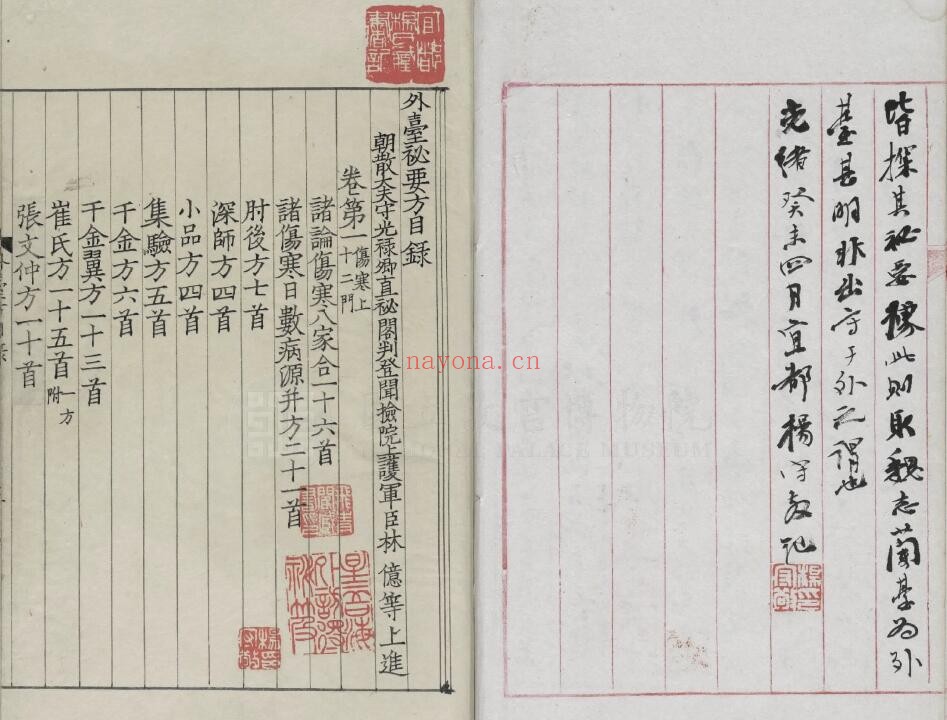 皆探其祕要據此則取魏志蘭臺為外
臺甚明非出守于外之謂也
光緒癸未四月宜都楊守敬記
外臺祕要方目錄
朝散大夫守光祿卿直祕閣判登聞撿院上護軍臣林億等上進
卷第一 傷寒上 十二門
諸論傷寒八家合一十六首
諸傷寒日數病源并方二十一首
肘後方七首
深師方四首
小品方四首
集驗方五首
千金方六首
千金翼方一十三首
崔氏方一十五首 附一方
張文仲方一十首
宜都楊氏藏書記
星吾海外訪得祕笈
飛青閣藏書印
nayona.cn
PALACE MUSEUM